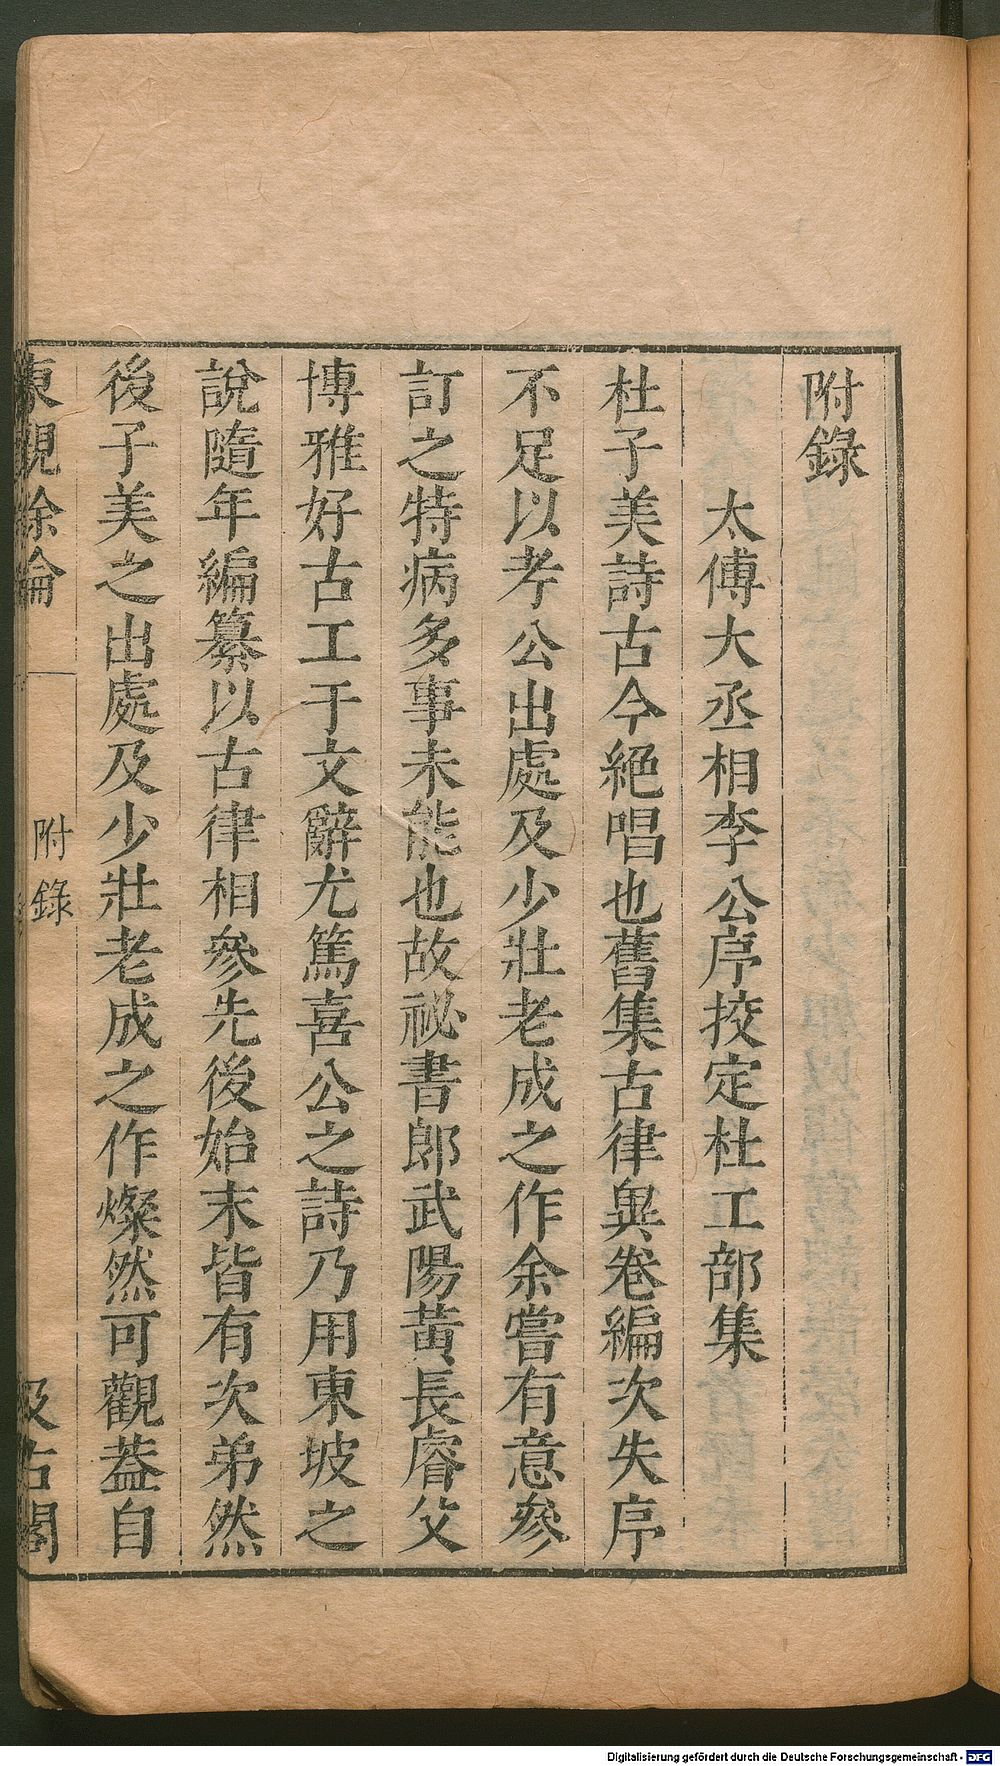 附錄
太傅大丞相李公序挍定杜工部集
杜子美詩古今絕唱也舊集古律異卷編次失序
不足以考公出處及少壯老成之作余嘗有意參
訂之特病多事未能也故祕書郎武陽黃長睿父
博雅好古工于文辭尤篤喜公之詩乃用東坡之
說隨年編纂以古律相參先後始末皆有次弟然
後子美之出處及少壯老成之作燦然可觀葢自
東觀余論 附錄 汲古閣
Digitalisierung gefördert durch die Deutsche Forschungsgemeinschaft - DFG